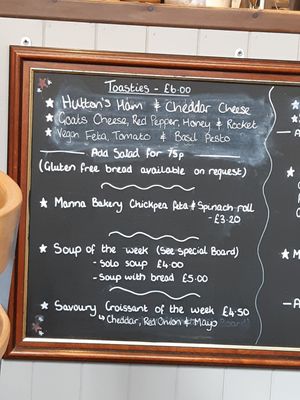 Toasties - £6.00
Hutton's Ham & Cheddar Cheese
Goats Cheese, Red Pepper, Honey & Rocket
Vegan Feta, Tomato & Basil Pesto
Add Salad for 75p
(Gluten free bread available on request)
Manna Bakery Chickpea Feta & Spinach roll
- £3.20
Soup of the week (See special Board)
- solo soup £4.00
- Soup with bread £5.00
Savoury Croissant of the week £4.50
↳ Cheddar, Red Onion & Mayo